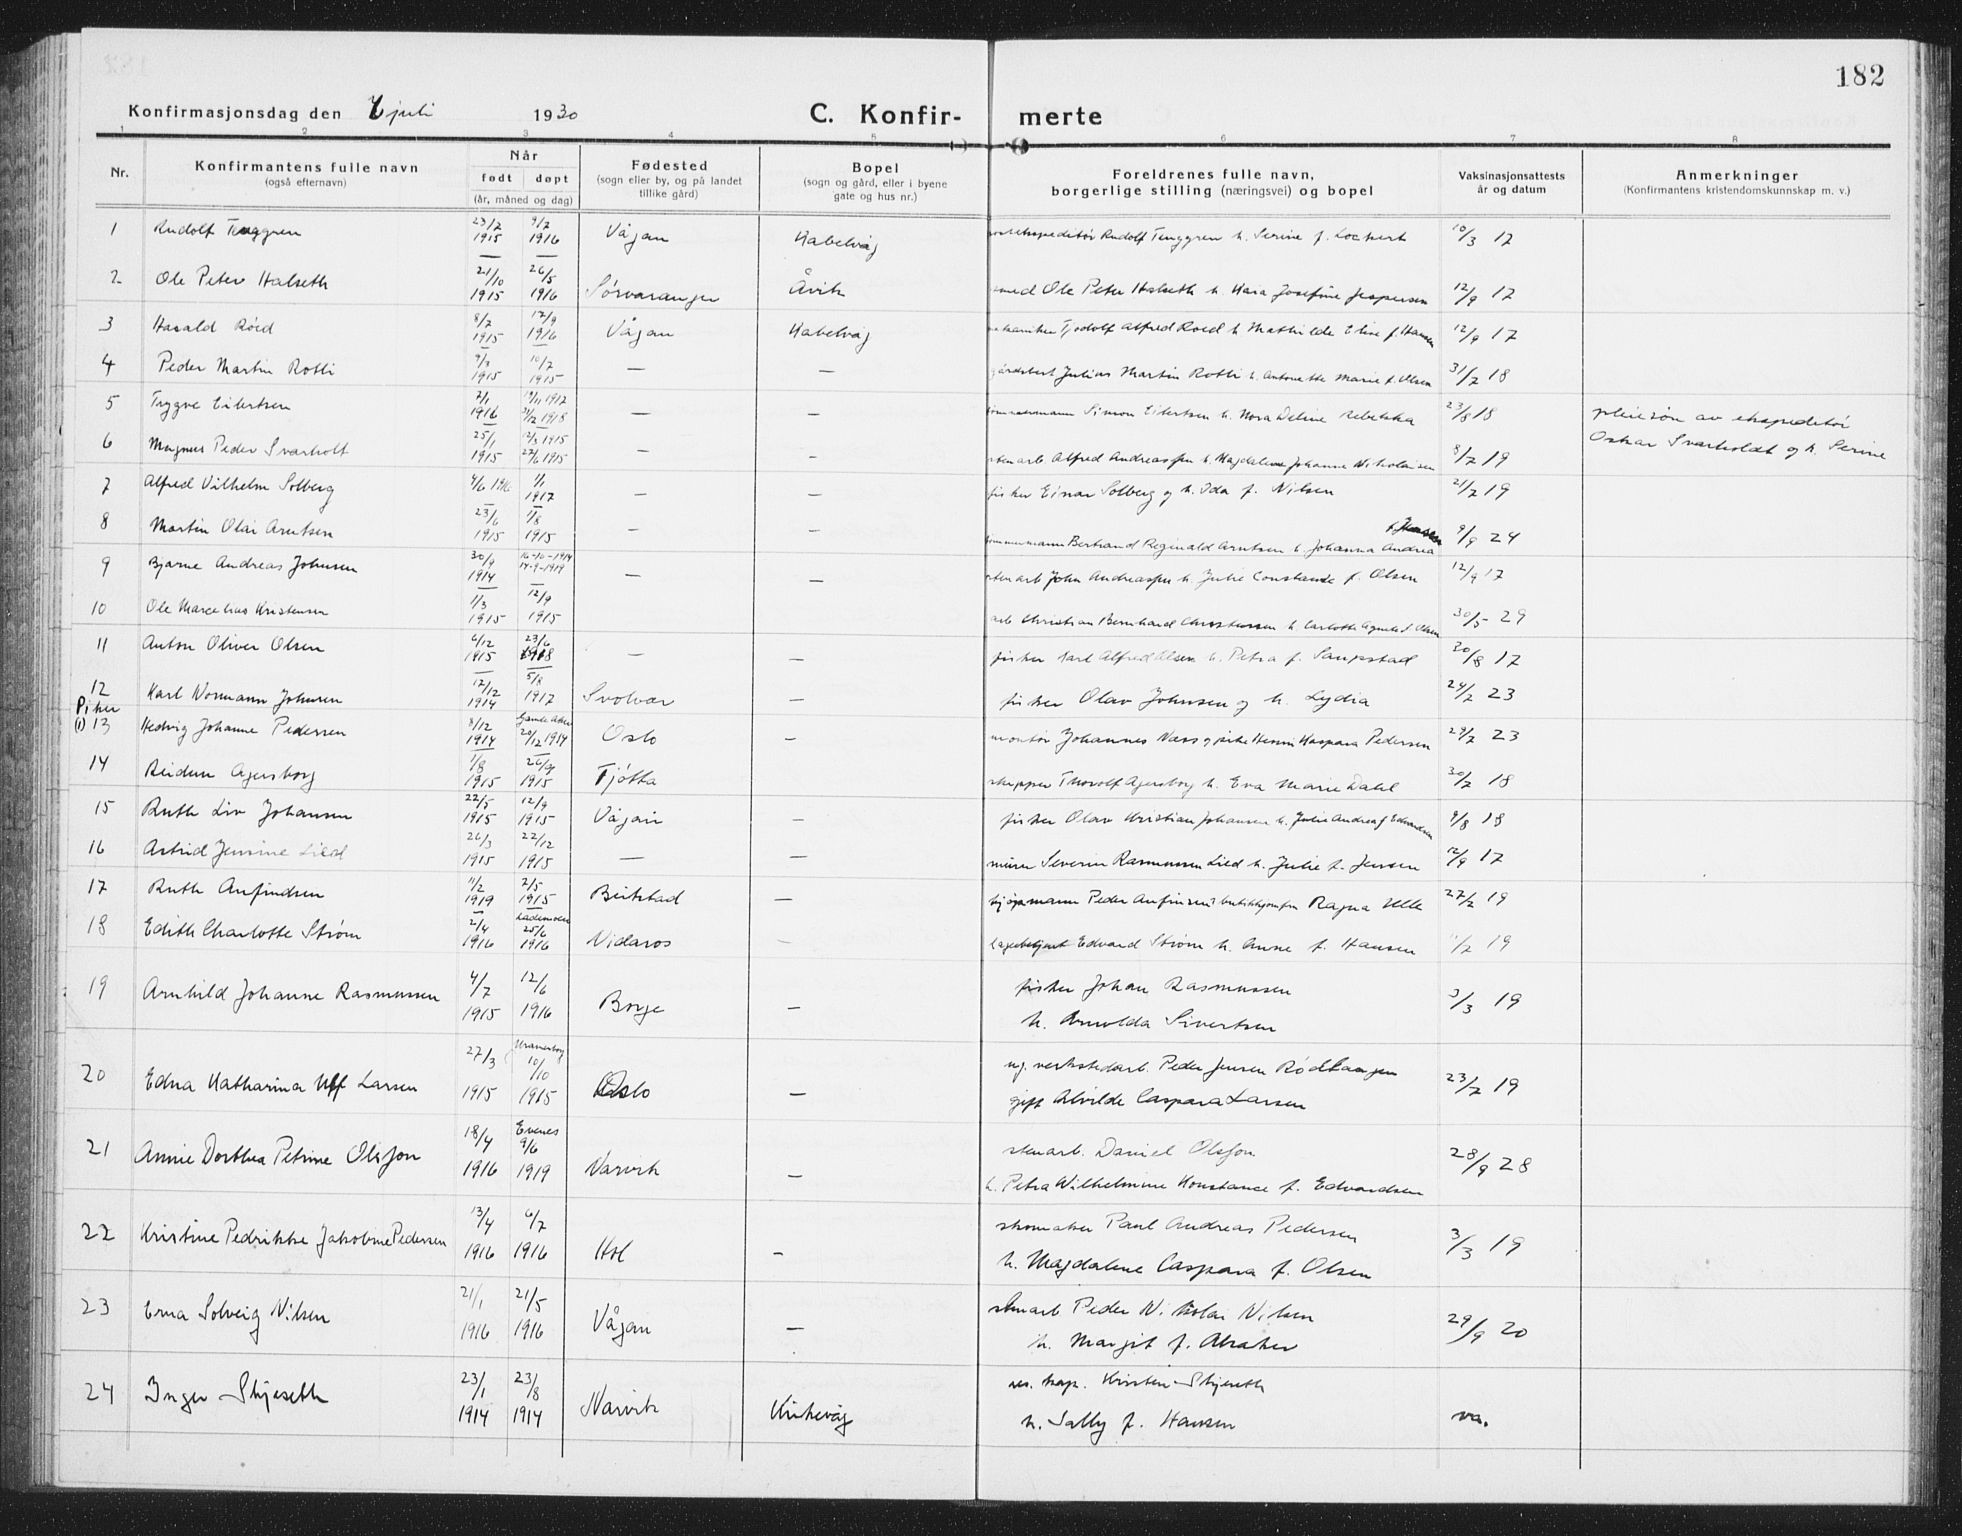 182
Konfirmasjonsdag den juli 1930 C. Konfir- merte
1 2 3 4 5 6 7 8
Nr. Konfirmantens fulle navn (også efternavn) Når født døpt (år, måned og dag) Fødested (sogn eller by, og på landet tillike gård) Bopel (sogn og gård, eller i byene gate og hus nr.) Foreldrenes fulle navn, borgerlige stilling (næringsvei) og bopel Vaksinasjonsattests år og datum Anmerkninger (Konfirmantens kristendomskunnskap m. v.)
1 Rudolf Tenggren 23/2 1915 9/2 1916 Vågan Kabelvåg Rudolf Tenggren h. Serine f. Lockert 10/3 17
2 Ole Peter Halseth 21/10 1915 26/5 1916 Sørvaranger Åvik smed Ole Peter Halseth h. Kara Josefine Jespersen 12/9 17
3 Harald Röed 8/7 1915 17/9 1916 Vågan Kabelvåg Alfred Röed h. Mathilde Elise f. Hansen 12/9 17
4 Peder Martin Rotli 9/3 1915 10/7 1915 — — Julius Martin Rotli h. Antonette Marie f. Olsen 31/7 18
5 Trygve Eilertsen 7/1 1916 — — Simon Eilertsen h. Nora Deline Rebekka 23/8 18 pleiesøn av ekspeditør
6 Magnus Peder Svarholt 25/1 1915 12/3 1915 27/6 1915 — — stenarb. Alfred Andreassen h. Magdalene Johanne Nikolaisen 8/7 19 Oskar Svarholdt og h. Serine
7 Alfred Vilhelm Solberg 4/6 1916 1/1 1917 — — fisker Einar Solberg og h. Ida f. Nilsen 21/7 19
8 Martin Olai Arntsen 23/6 1915 1/8 1915 — — tømmermann Bertrand Reginald Arntsen h. Johanna Andrea f. Jensen 9/9 24
9 Bjarne Andreas Johnsen 30/9 1914 16-10-1914 — — stenarb John Andreassen h. Julie Constanse f. Olsen 12/9 17
10 Ole Marcelius Kristensen 1/3 1915 12/9 1915 arb Christian Bernhard Christensen h. Carlotte Agnete f. Olsen 30/5 29
11 Anton Oliver Olsen 6/12 1915 23/6 1918 — — fisker Karl Alfred Olsen h. Petra f. Laupstad 30/8 17
12 Karl Normann Johnsen 17/12 1914 5/8 1917 Svolvær — fisker Olav Johnsen og h. Lydia 24/2 23
Piker
(1) 13 Hedvig Johanne Pedersen 8/12 1914 Gamle Aker 20/12 1914 Oslo — montør Johannes Næss og pike Henni Kaspara Pedersen 29/7 23
14 Reidun Agersborg 1/8 1915 26/9 1915 Tjötta skipper Thorolf Agersborg h. Eva Marie Dahl 30/7 18
15 Ruth Liv Johansen 22/5 1915 12/9 1915 Vågan — fisker Olav Kristian Johansen h. Julie Andrea f Edvardsen 9/8 18
16 Astrid Jensine Lied 26/3 1915 22/12 1915 — — murer Severin Rasmussen Lied h. Julie f. Jensen 12/9 17
17 Ruth Anfindsen 11/2 1919 2/5 1915 Beitstad — kjøpmann Peder Anfinsen Ragna Ulle 27/2 19
18 Edith Charlotte Strøm 2/4 1916 Lademoen 25/6 1916 Nidaros — Edvard Strøm h. Anne f. Hansen 11/7 19
19 Arnhild Johanne Rasmussen 4/7 1915 12/6 1916 Borge — fisker Johan Rasmussen 3/3 19
h. Arnolda Sivertsen
20 Edna Katharina Ulff Larsen 27/3 1915 Uranienborg 10/10 1915 Oslo — ug. verkstedarb. Peder Jensen Rödhaugen 23/7 19
gift Alvilde Caspara Larsen
21 Annie Dorthea Petrine Olsson 18/4 1916 Evenes 9/6 1919 Narvik — stenarb. Daniel Olsson 28/9 28
h. Petra Wilhelmine Konstance f. Edvardsen
22 Kristine Pedrikke Jakobine Pedersen 13/4 1916 6/7 1916 Hol — skomaker Paul Andreas Pedersen 3/3 19
h. Magdalene Caspara f. Olsen
23 Erna Solveig Nilsen 21/1 1916 21/5 1916 Vågan — stenarb Peder Nikolai Nilsen 29/9 20
h. Margit f. Abraker
24 Inger Skjeseth 23/1 1914 23/8 1914 Narvik Kirkevåg res. kap. Kristen Skjeseth va.
h. Sally f. Hansen